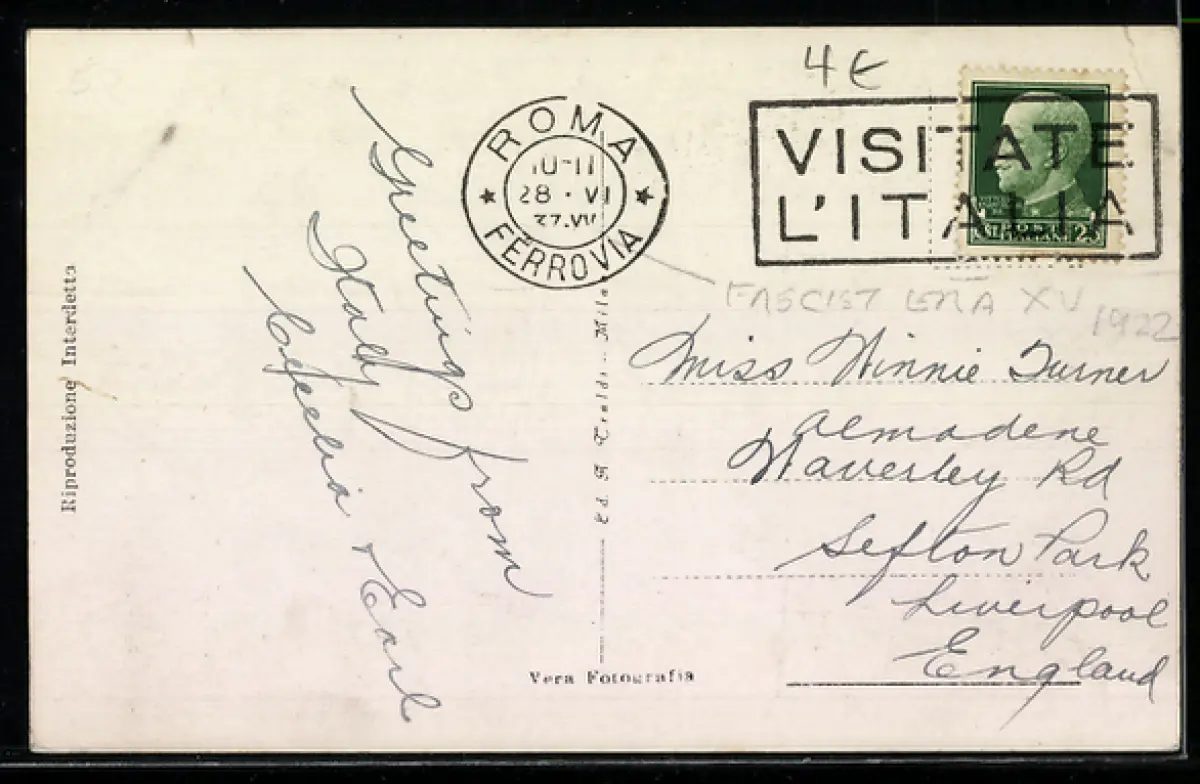 4 E
ROMA
10-11
28 · VI
37.XV
FERROVIA
VISITATE
L'ITALIA
FASCIST ERA XV
1922
Greetings from
Italy
Cefelia + Earl
Miss Winnie Turner
Almadene
Waverley Rd
Sefton Park
Liverpool
England
Riproduzione Interdetta
Ed. G. Traldi - Mila
Vera Fotografia